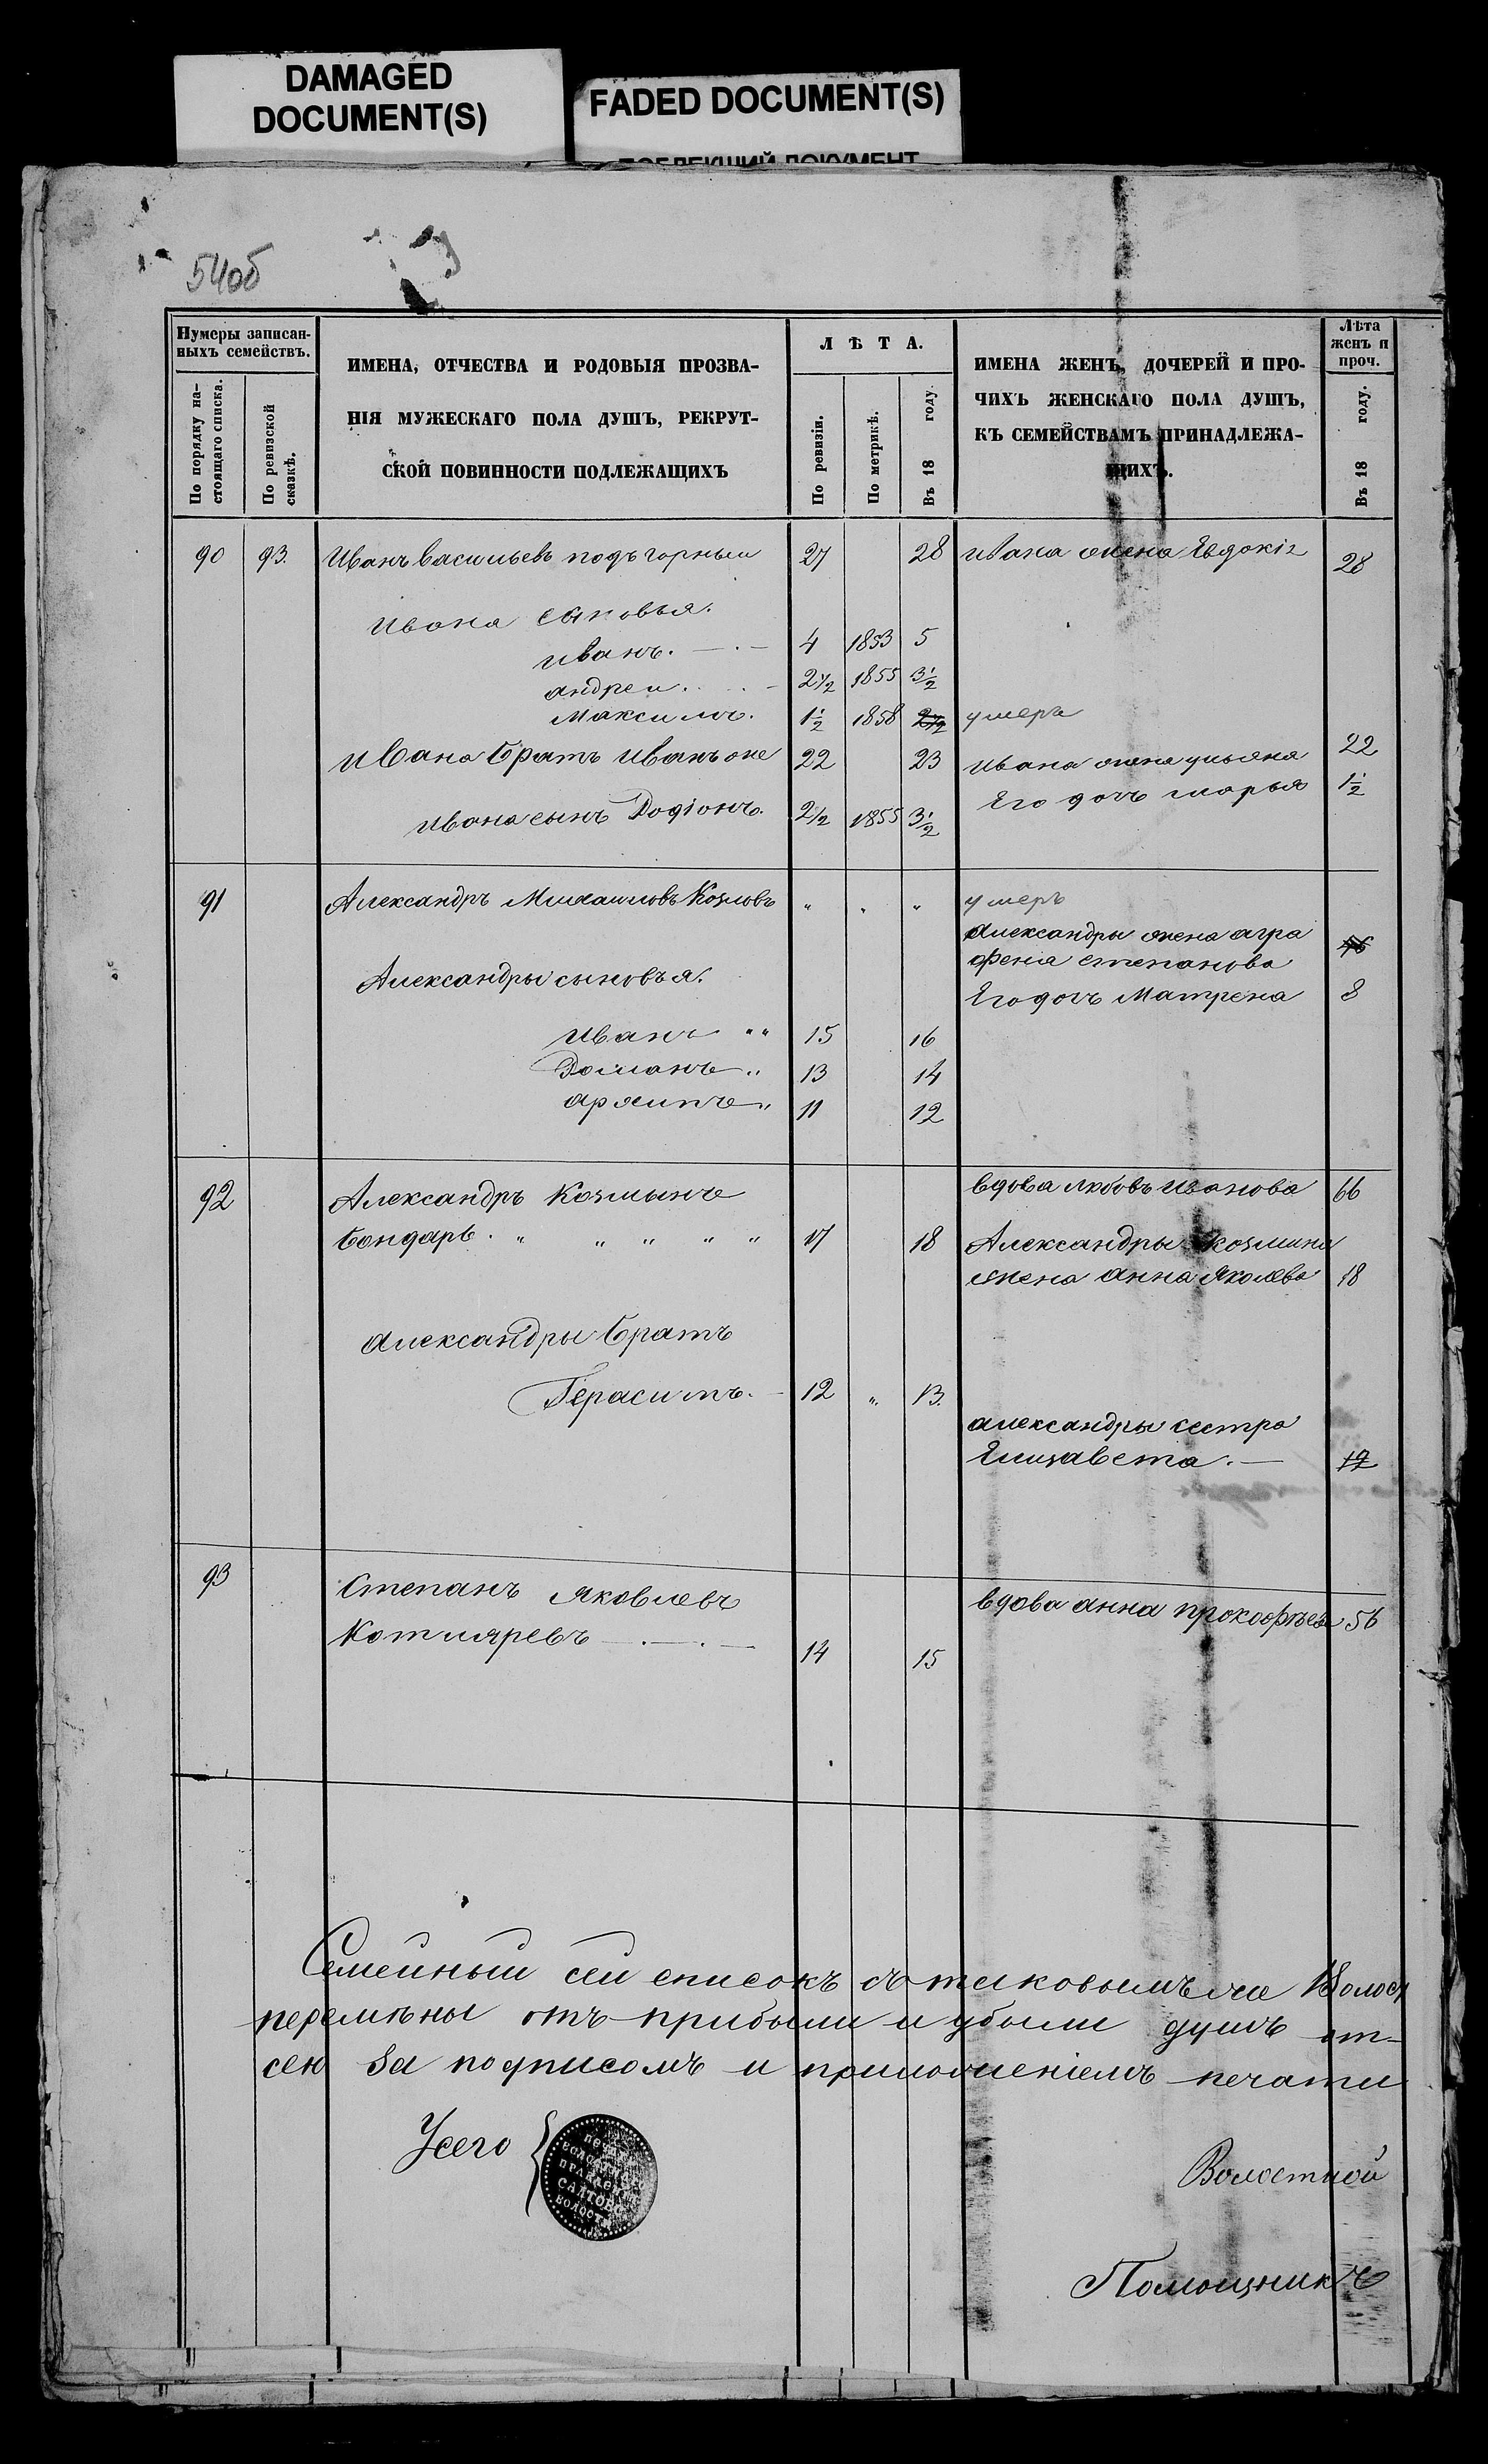 DAMAGED
DOCUMENT(S)
FADED DOCUMENT(S)
54об
Нумеры записан-
ныхъ семействъ.
По порядку на-
стоящаго списка.
По ревизской
сказкѣ.
ИМЕНА, ОТЧЕСТВА И РОДОВЫЯ ПРОЗВА-
НІЯ МУЖЕСКАГО ПОЛА ДУШЪ, РЕКРУТ-
СКОЙ ПОВИННОСТИ ПОДЛЕЖАЩИХЪ
ЛѢТА.
По ревизіи.
По метрикѣ.
Въ 18 году.
ИМЕНА ЖЕНЪ, ДОЧЕРЕЙ И ПРО-
ЧИХЪ ЖЕНСКАГО ПОЛА ДУШЪ,
КЪ СЕМЕЙСТВАМЪ ПРИНАДЛЕЖА-
ЩИХЪ.
Лѣта
женъ и
проч.
Въ 18 году.
90 93. Иванъ васильевъ подъгорныи 27 28 ивана жена Евдокія 28
Ивана сыновья.
иванъ. 4 1853 5
андреи. 2 1/2 1855 3 1/2
Максимъ. 1 1/2 1858 2 1/2 умеръ
ивана братъ иванъ оне 22 23 ивана жена ульяна 22
Его дочь марья 1 1/2
ивана сынъ Родіонъ. 2 1/2 1855 3 1/2
91 Александръ Михаиловъ Козловъ " " " умеръ
Александры жена агра
фена степанова
Александры сыновья.
Его дочь Матрена 8
Иванъ " " 15 16
Романъ " 13 14
архипъ " 11 12
92 Александръ Козминъ вдова любовь Иванова 66
бондарь. " " " " " 17 18 Александры козмина
жена анна Яковлева 18
Александры братъ
Герасимъ. 12 " 13.
александры сестра
Елизавета.
93 Степанъ Яковлевъ вдова анна прокофьева 56
Котляревъ 14 15
Семейный сей списокъ съ таковымъ же Волос
перемѣны отъ прибыли и убыли душъ от-
сею за подписомъ и приложеніемъ печати
Усего
ПЕЧАТЬ
ВОЛОСТНАГО
ПРАВЛЕНІЯ
САЛТОВС
ВОЛОСТИ
Волостной
Помощникъ